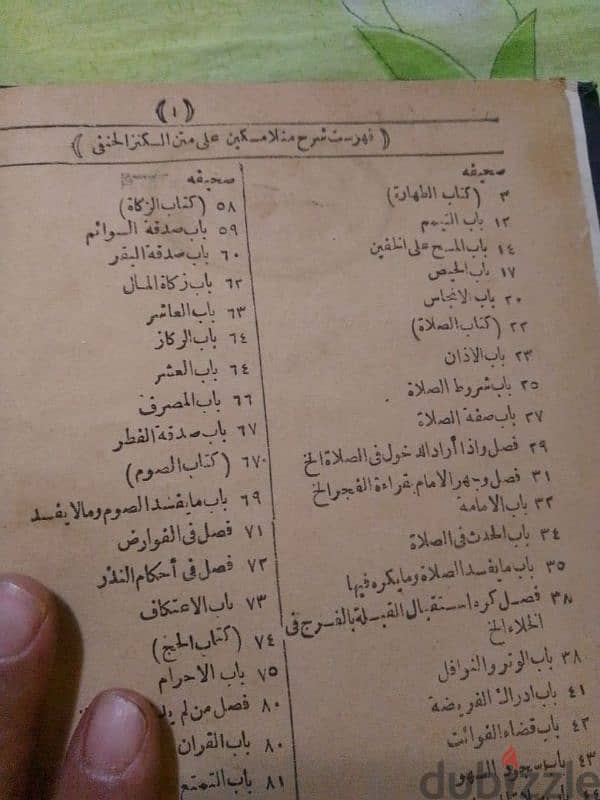 (١)
(فهرست شرح منلا مسكين على متن الكنز الحنفى)
صحيفه
٣ (كتاب الطهارة)
١٢ باب التيمم
١٤ باب المسح على الخفين
١٧ باب الحيض
٢٠ باب الانجاس
٢٢ (كتاب الصلاة)
٢٣ باب الاذان
٢٥ باب شروط الصلاة
٢٧ باب صفة الصلاة
٢٩ فصل واذا أراد الدخول فى الصلاة الخ
٣١ فصل وجهر الامام بقراءة الفجر الخ
٣٢ باب الامامة
٣٤ باب الحدث فى الصلاة
٣٥ باب ما يفسد الصلاة وما يكره فيها
٣٨ فصل كره استقبال القبلة بالفرج فى
الخلاء الخ
٣٨ باب الوتر والنوافل
٤١ باب ادراك الفريضة
٤٢ باب قضاء الفوائت
٤٣ باب سجود السهو
٤٤ باب
صحيفه
٥٨ (كتاب الزكاة)
٥٩ باب صدقة السوائم
٦٠ باب صدقة البقر
٦٢ باب زكاة المال
٦٣ باب العاشر
٦٤ باب الركاز
٦٤ باب العشر
٦٦ باب المصرف
٦٧ باب صدقة الفطر
٦٧ (كتاب الصوم)
٦٩ باب ما يفسد الصوم وما لا يفسد
٧١ فصل فى العوارض
٧٢ فصل فى أحكام النذر
٧٣ باب الاعتكاف
٧٤ (كتاب الحج)
٧٥ باب الاحرام
٨٠ فصل من لم
٨٠ باب القران
٨١ باب التمتع
dubizzle